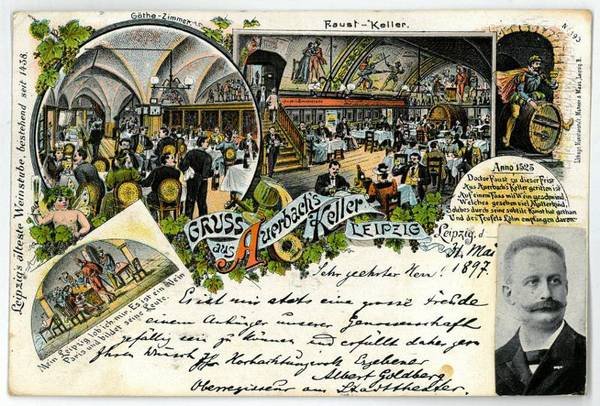 Göthe-Zimmer.
Faust-Keller.
N. 193
Leipzig's älteste Weinstube, bestehend seit 1438.
GRUSS
aus Auerbach's
Keller
LEIPZIG
Anno 1525
Doctor Faust zu dieser Frist
Aus Auerbachs Keller geritten ist
Auf einem Fass mit Wein geschwind,
Welches gesehen viel Mutterkind
Solches durch seine subtile Kunst hat gethan
Und des Teufels Lohn empfangen davon.
Mein Leipzig lob ich mir, Es ist ein klein
Paris und bildet seine Leute.
Leipzig, d.
31. Mai
1897.
Sehr geehrter Herr!
Es ist mir stets eine grosse Freude
einem Anhänger unserer Genossenschaft
gefällig sein zu können und erfüllt daher gern
Ihren Wunsch Ihr Hochachtungsvoll Ergebener
Albert Goldberg
Oberregisseur am Stadttheater.